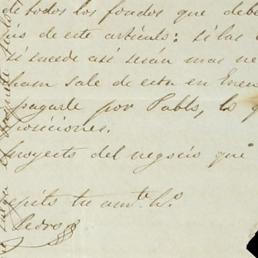 de todos los fondos que deb
de este articulo: si las
si sucede asi serán mas ne
ham sale de esta en Ene
pagarle por Pablo, lo q
posiciones.
royecto del negocio que
epito tu amte. ho.
Pedro